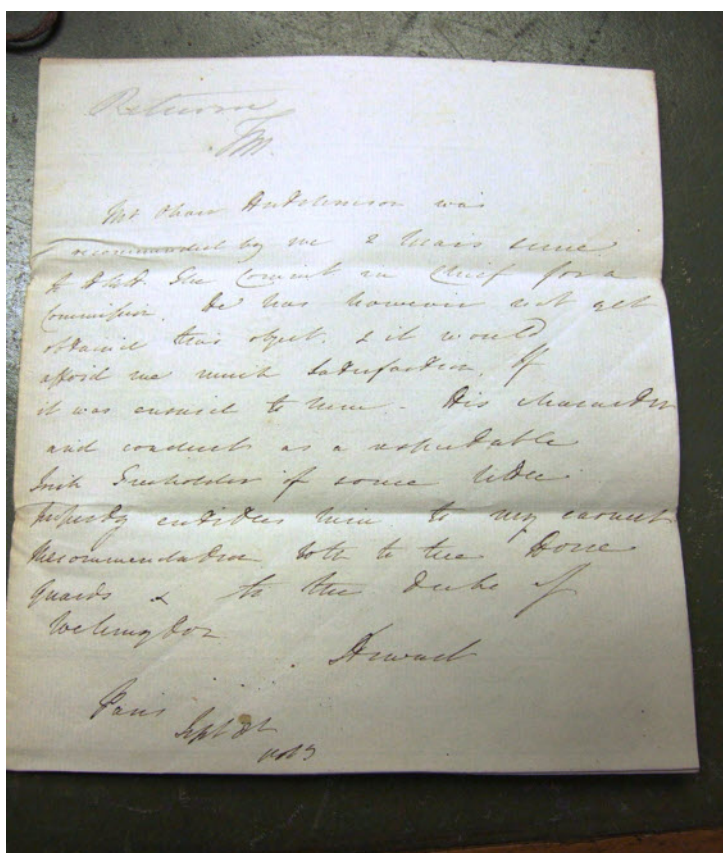 Return
Mr Hutchinson was
recommended by me 2 Years since
to the Comm in Chief for a
Commission. He has however not yet
obtained this object, & it would
afford me much satisfaction, if
it was ensured to him. His character
and conduct as a respectable
Irish Freeholder of some little
property entitles him to my earnest
recommendation both to the Horse
Guards & to the Duke of
Wellington
Stewart
Paris
Sept